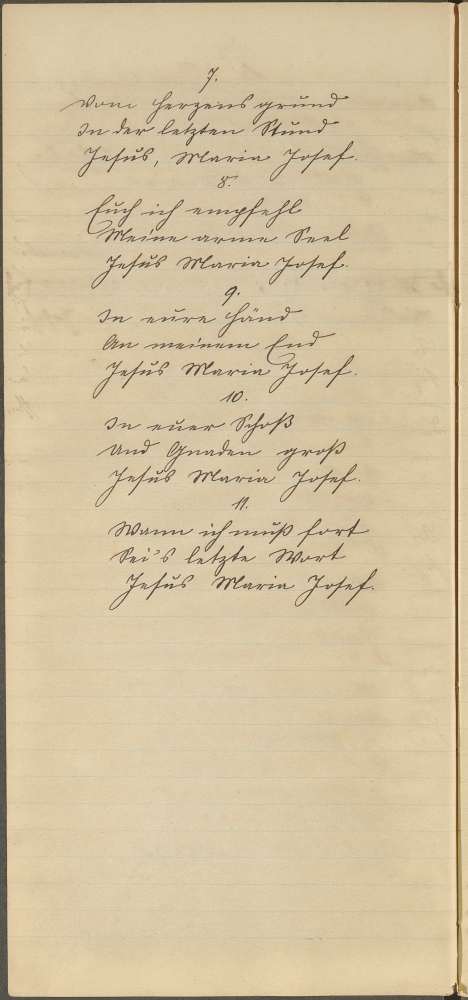 7.
Vom Herzensgrund
In der letzten Stund
Jesus, Maria Josef.
8.
Euch ich empfehl
Meine arme Seel
Jesus Maria Josef.
9.
In eure Händ
An meinem End
Jesus Maria Josef.
10.
In euer Schoß
Und Gnaden groß
Jesus Maria Josef.
11.
Wann ich muß fort
Sei's letzte Wort
Jesus Maria Josef.